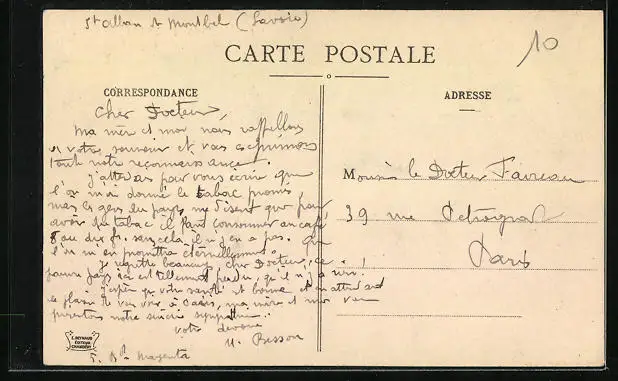 St alban de Montbel (Savoie)
10
CARTE POSTALE
CORRESPONDANCE
ADRESSE
Cher Docteur,
Ma mère et moi nous rappellons
à votre souvenir et vous exprimons
toute notre reconnaissance.
J'attendais pour vous écrire que
l'on m'ai donné le tabac promis,
mais les gens du pays me disent que pour
avoir du tabac il faut consommer au café
8 ou dix fr. sans cela il n'y en a pas. On
l'on m'en promettra éternellement.
Je regrette beaucoup cher Docteur, ce
pauvre pays ici est tellement perdu, qu'il n'y a rien.
J'espère que votre santé est bonne et en attendant
le plaisir de vous voir à Paris, ma mère et moi vous
présentons notre sincère sympathie.
votre dévouée
M. Besson
5. Bd Magenta
Monsieur le Docteur Favreau
39 rue Petrograd
Paris
E. REYNAUD
EDITEUR
CHAMBÉRY